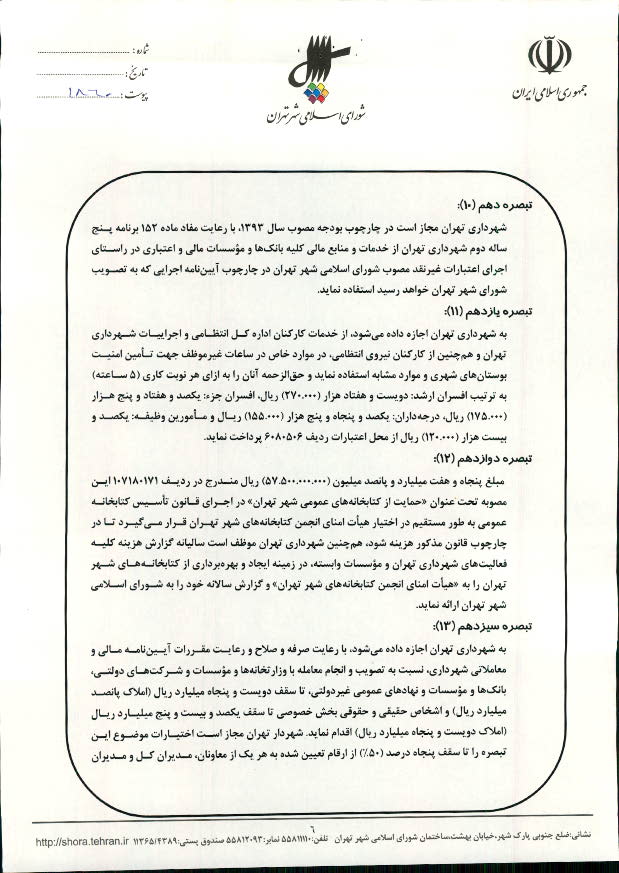 جمهوری اسلامی ایران
شورای اسلامی شهر تهران
شماره :
تاریخ :
پیوست :
تبصره دهم (۱۰):
شهرداری تهران مجاز است در چارچوب بودجه مصوب سال ۱۳۹۳، با رعایت مفاد ماده ۱۵۲ برنامه پنج
ساله دوم شهرداری تهران از خدمات و منابع مالی کلیه بانک‌ها و مؤسسات مالی و اعتباری در راستای
اجرای اعتبارات غیرنقد مصوب شورای اسلامی شهر تهران در چارچوب آیین‌نامه اجرایی که به تصویب
شورای شهر تهران خواهد رسید استفاده نماید.
تبصره یازدهم (۱۱):
به شهرداری تهران اجازه داده می‌شود، از خدمات کارکنان اداره کل انتظامی و اجراییات شهرداری
تهران و هم‌چنین از کارکنان نیروی انتظامی، در موارد خاص در ساعات غیرموظف جهت تأمین امنیت
بوستان‌های شهری و موارد مشابه استفاده نماید و حق‌الزحمه آنان را به ازای هر نوبت کاری (۵ ساعته)
به ترتیب افسران ارشد: دویست و هفتاد هزار (۲۷۰.۰۰۰) ریال، افسران جزء: یکصد و هفتاد و پنج هزار
(۱۷۵.۰۰۰) ریال، درجه‌داران: یکصد و پنجاه و پنج هزار (۱۵۵.۰۰۰) ریال و مأمورین وظیفه: یکصد و
بیست هزار (۱۲۰.۰۰۰) ریال از محل اعتبارات ردیف ۶۰۸۰۵۰۶ پرداخت نماید.
تبصره دوازدهم (۱۲):
مبلغ پنجاه و هفت میلیارد و پانصد میلیون (۵۷.۵۰۰.۰۰۰.۰۰۰) ریال مندرج در ردیف ۱۰۷۱۸۰۱۷۱ این
مصوبه تحت عنوان «حمایت از کتابخانه‌های عمومی شهر تهران» در اجرای قانون تأسیس کتابخانه
عمومی به طور مستقیم در اختیار هیأت امنای انجمن کتابخانه‌های شهر تهران قرار می‌گیرد تا در
چارچوب قانون مذکور هزینه شود، هم‌چنین شهرداری تهران موظف است سالیانه گزارش هزینه کلیه
فعالیت‌های شهرداری تهران و مؤسسات وابسته، در زمینه ایجاد و بهره‌برداری از کتابخانه‌های شهر
تهران را به «هیأت امنای انجمن کتابخانه‌های شهر تهران» و گزارش سالانه خود را به شورای اسلامی
شهر تهران ارائه نماید.
تبصره سیزدهم (۱۳):
به شهرداری تهران اجازه داده می‌شود، با رعایت صرفه و صلاح و رعایت مقررات آیین‌نامه مالی و
معاملاتی شهرداری، نسبت به تصویب و انجام معامله با وزارتخانه‌ها و مؤسسات و شرکت‌های دولتی،
بانک‌ها و مؤسسات و نهادهای عمومی غیردولتی، تا سقف دویست و پنجاه میلیارد ریال (املاک پانصد
میلیارد ریال) و اشخاص حقیقی و حقوقی بخش خصوصی تا سقف یکصد و بیست و پنج میلیارد ریال
(املاک دویست و پنجاه میلیارد ریال) اقدام نماید. شهردار تهران مجاز است اختیارات موضوع این
تبصره را تا سقف پنجاه درصد (۵۰٪) از ارقام تعیین شده به هر یک از معاونان، مدیران کل و مدیران
۶
نشانی:ضلع جنوبی پارک شهر،خیابان بهشت،ساختمان شورای اسلامی شهر تهران تلفن:۵۵۸۱۱۱۱۰ نمابر:۵۵۸۱۲۰۹۳ صندوق پستی:۱۱۳۶۵/۴۳۸۹ http://shora.tehran.ir